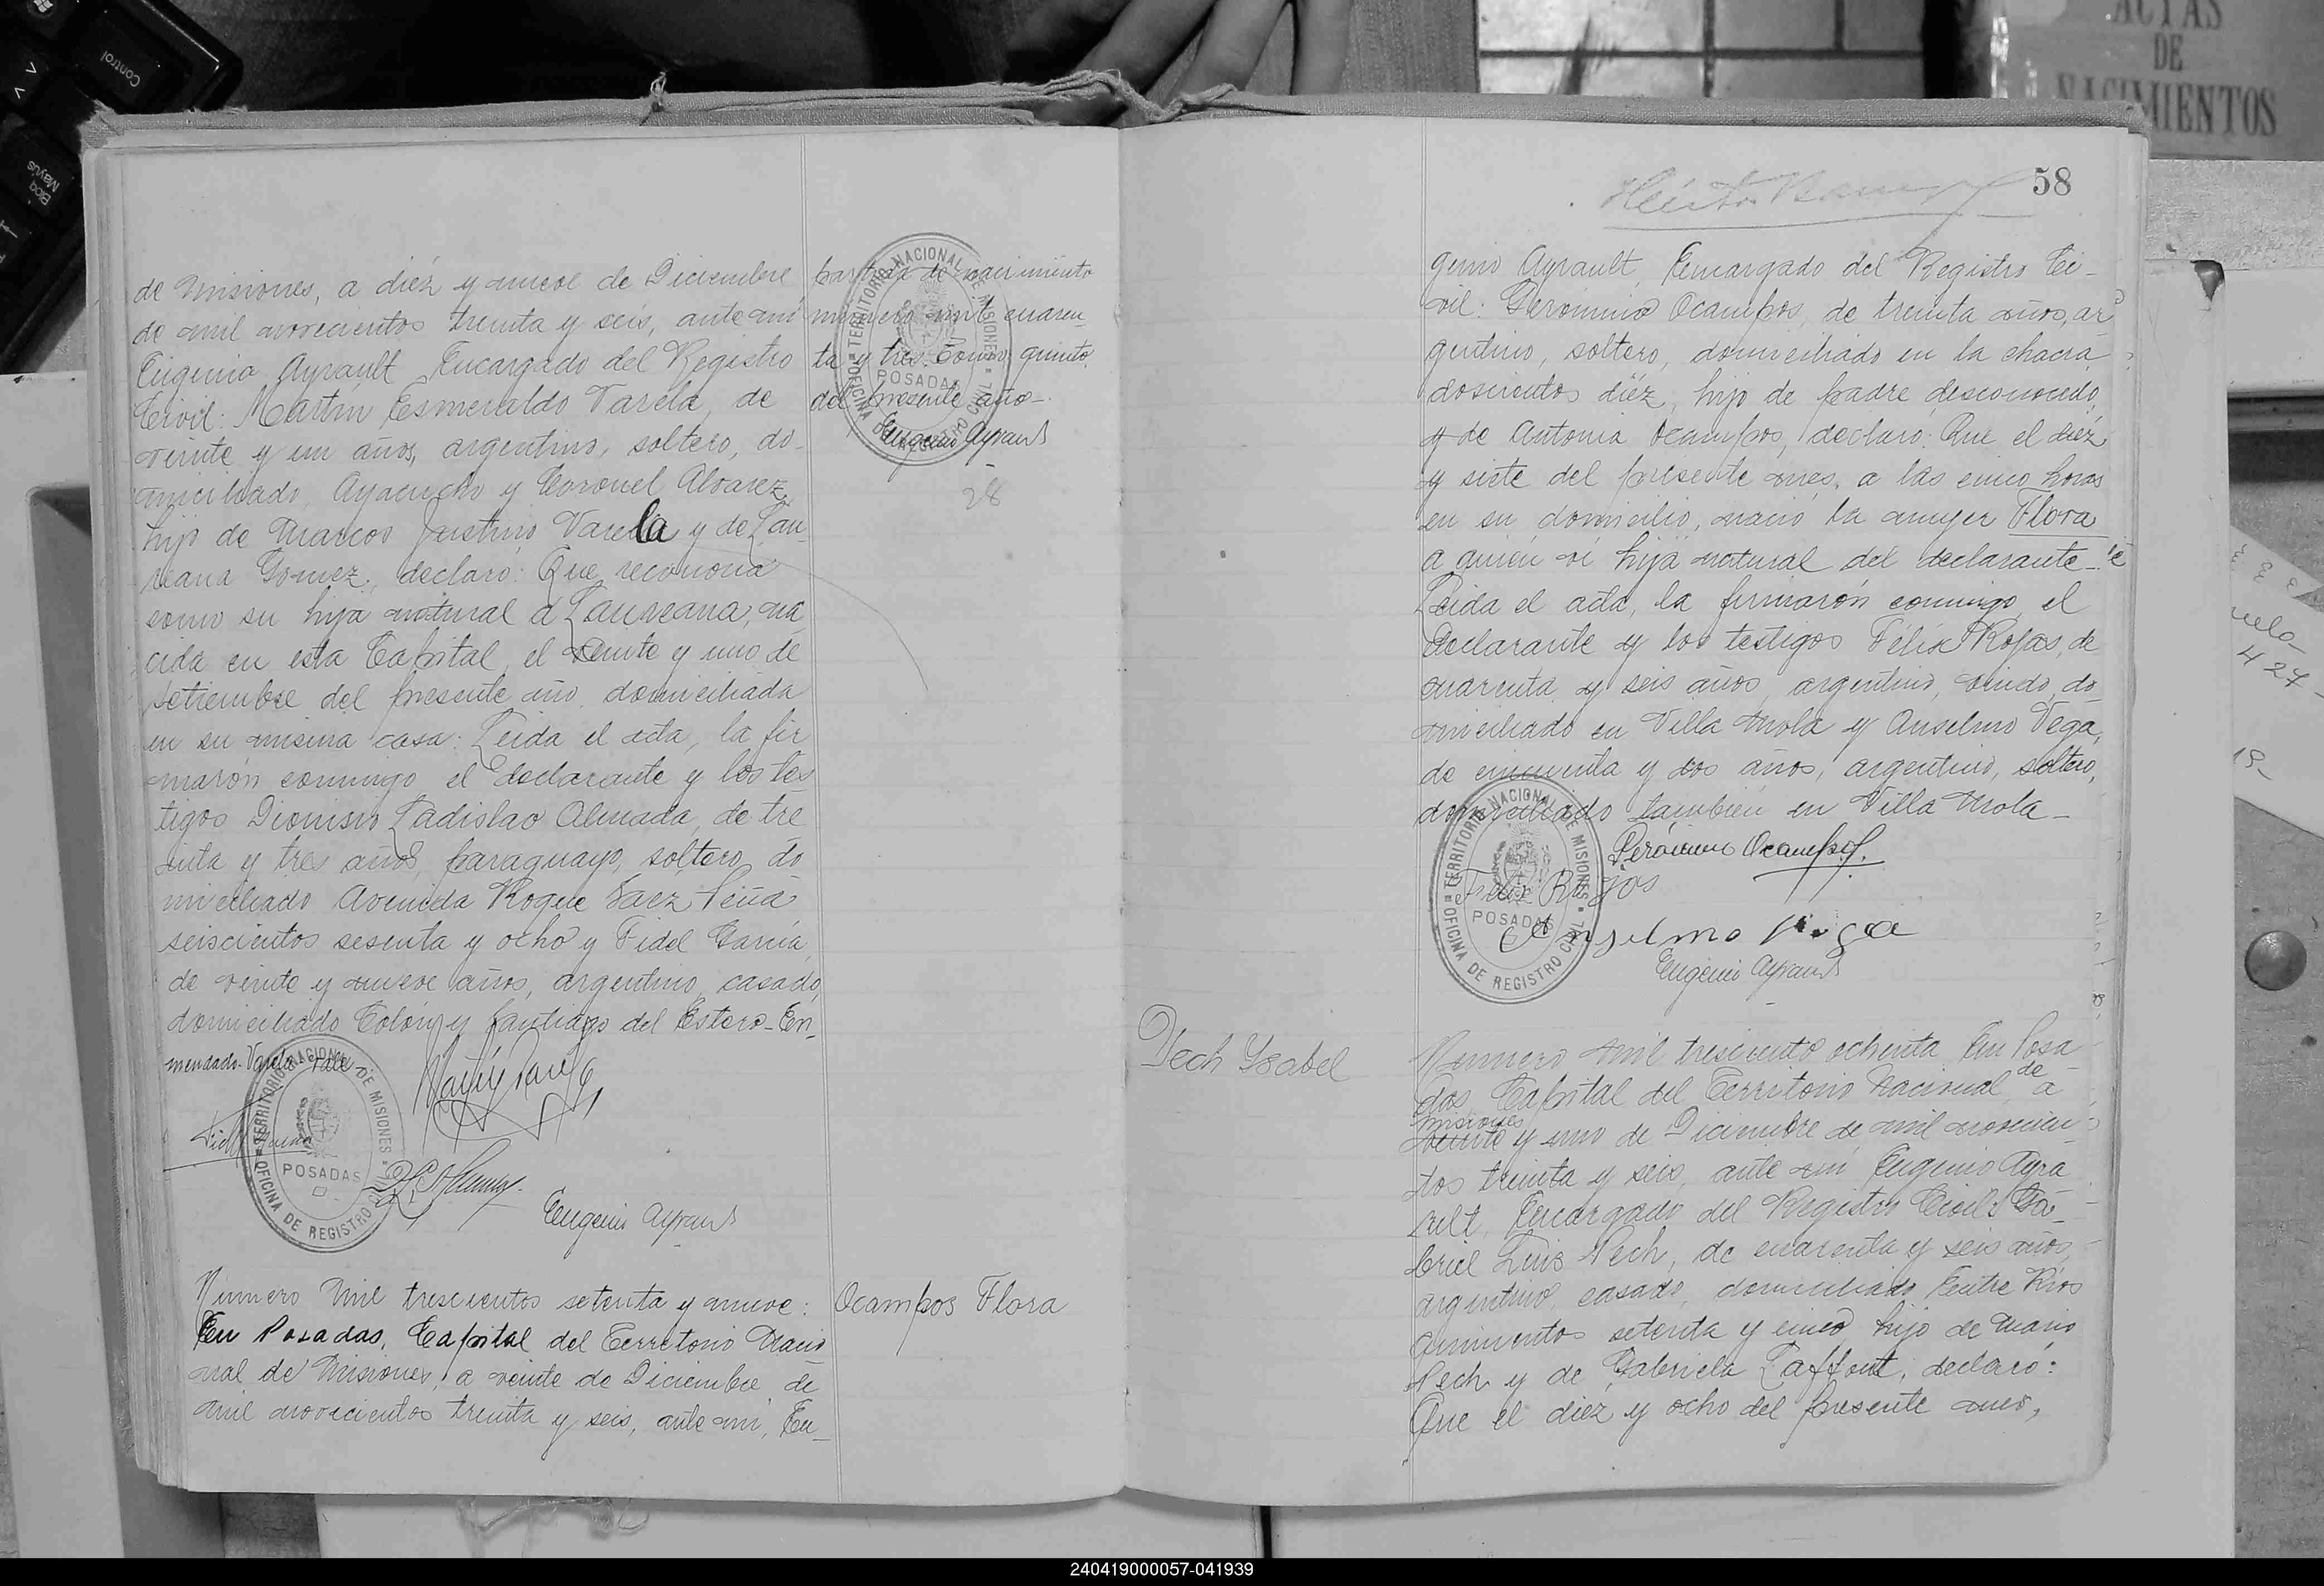 Control
Bloq
Mayús
ACTAS
DE
NACIMIENTOS
de Misiones, a diéz y nueve de Diciembre
de mil novecientos treinta y seis, ante mí
Eugenio Ayrault Encargado del Registro
Civil: Martín Esmeraldo Varela, de
veinte y un años, argentino, soltero, do-
miciliado Ayacucho y Coronel Alvarez,
hijo de Marcos Justino Varela y de Lau-
reana Gomez, declaró: Que reconocia
como su hija natural a Laureana, na
cida en esta Capital, el veinte y uno de
setiembre del presente año, domiciliada
en su misma casa: Leida el acta, la fir
marón conmigo el declarante y los tes
tigos Dionisio Ladislao Almada, de tre
inta y tres años, paraguayo, soltero, do
miciliado Avenida Roque Saez Peña
seiscientos sesenta y ocho y Fidel García,
de veinte y nueve años, argentino, casado,
domiciliado Colón y Santiago del Estero-En-
mendado-Varela-vale-
TERRITORIO NACIONAL DE MISIONES
OFICINA DE REGISTRO CIVIL
POSADAS
Eugenio Ayrault
Número mil trescientos setenta y nueve:
En Posadas, Capital del Territorio Nacio
nal de Misiones, a veinte de Diciembre de
mil novecientos treinta y seis, ante mí, Eu-
partida de nacimiento
número mil cuaren-
ta y tres tomo quinto
del presente año-
Eugenio Ayrault
TERRITORIO NACIONAL DE MISIONES
OFICINA DE REGISTRO CIVIL
POSADAS
28
Ocampos Flora
58
genio Ayrault, Encargado del Registro Ci-
vil: Geronimo Ocampos, de treinta años, ar
gentino, soltero, domiciliado en la chacra
doscientos diéz, hijo de padre desconocido,
y de Antonia Ocampos, declaró: Que el diéz
y siete del presente mes, a las cinco horas
en su domicilio, nació la mujer Flora
a quién ví hija natural del declarante-
Leida el acta, la firmarón conmigo el
declarante y los testigos Félix Rojas, de
cuarenta y seis años, argentino, viudo, do-
miciliado en Villa Mola y Anselmo Vega,
de cincuenta y dos años, argentino, soltero,
domiciliado también en Villa Mola-
Gerónimo Ocampos.
Felix Rojos
Anselmo Vega
Eugenio Ayrault
TERRITORIO NACIONAL DE MISIONES
OFICINA DE REGISTRO CIVIL
POSADAS
Pech Ysabel
Número mil trescientos ochenta En Posa
das Capital del Territorio Nacional de a
Misiones
veinte y uno de Diciembre de mil novecien-
tos treinta y seis, ante mí Eugenio Ayra
ult, Encargado del Registro Civil: Ga-
briel Luis Pech, de cuarenta y seis años,
argentino, casado, domiciliado Entre Ríos
quinientos setenta y cinco, hijo de Mario
Pech y de Gabriela Laffont, declaró:
Que el diéz y ocho del presente mes,
427
19-
240419000057-041939